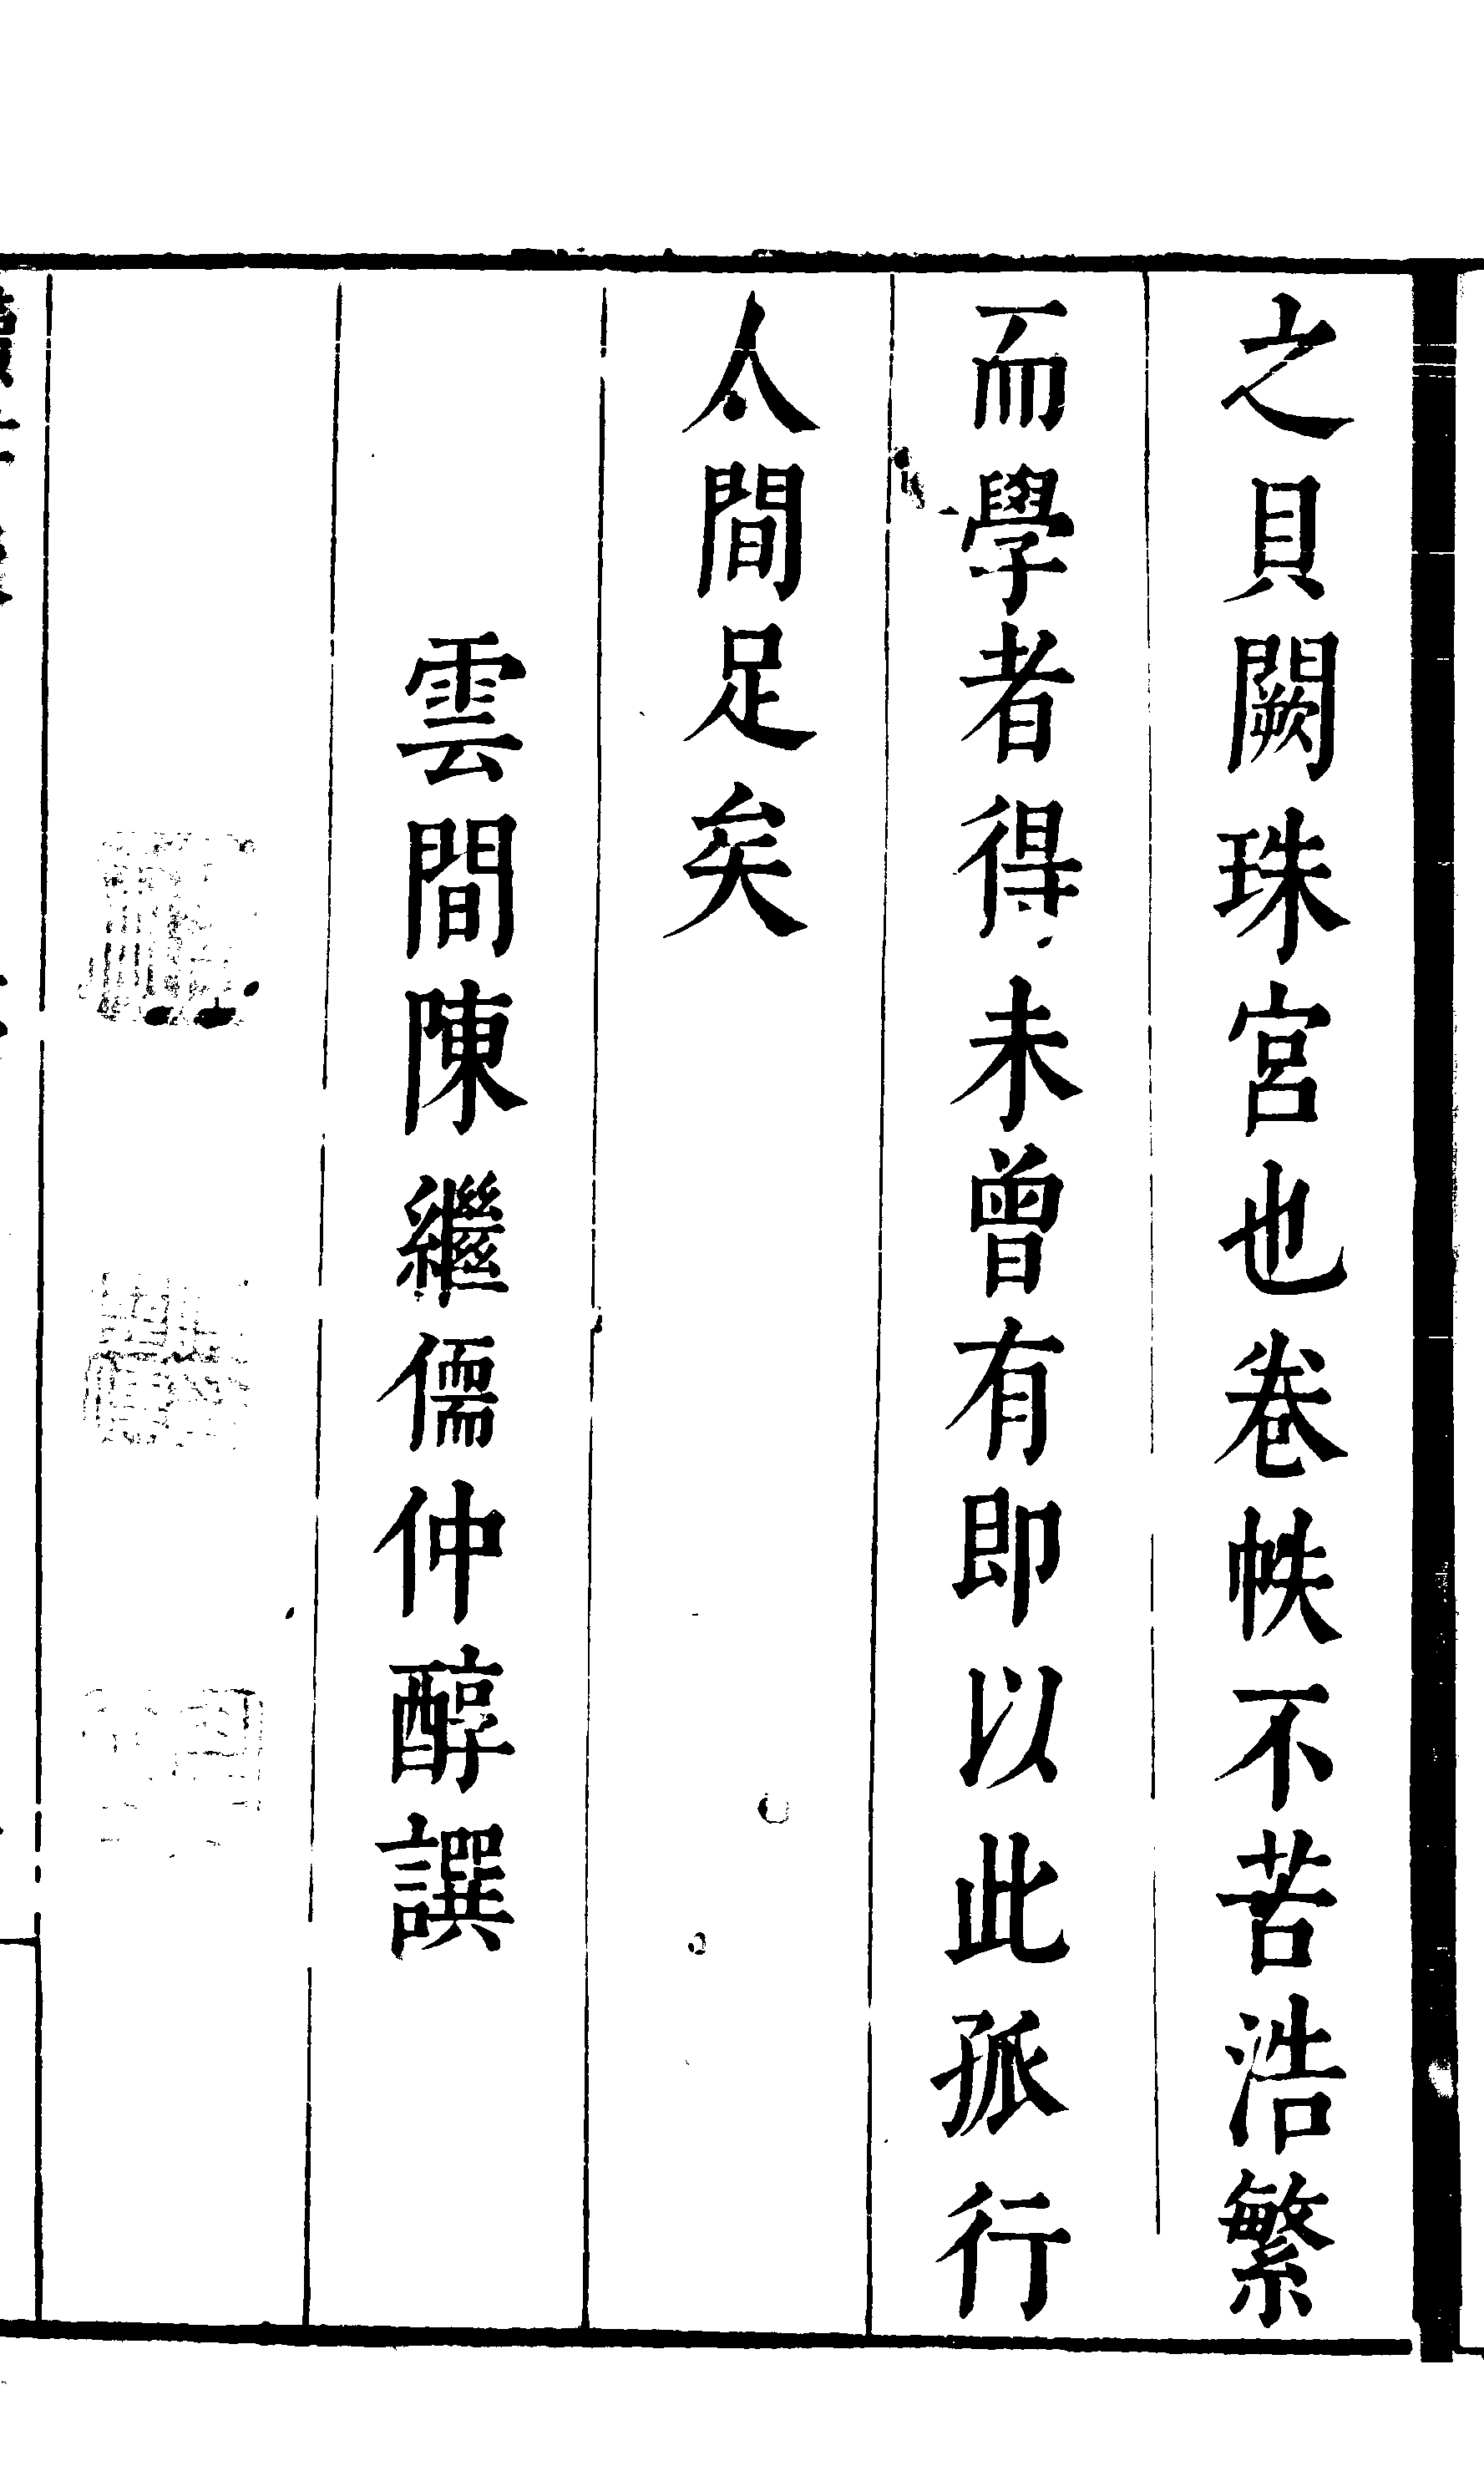 之貝闕珠宮也卷帙不苦浩繁
而學者得未曾有即以此孤行
人間足矣
雲間陳繼儒仲醇譔